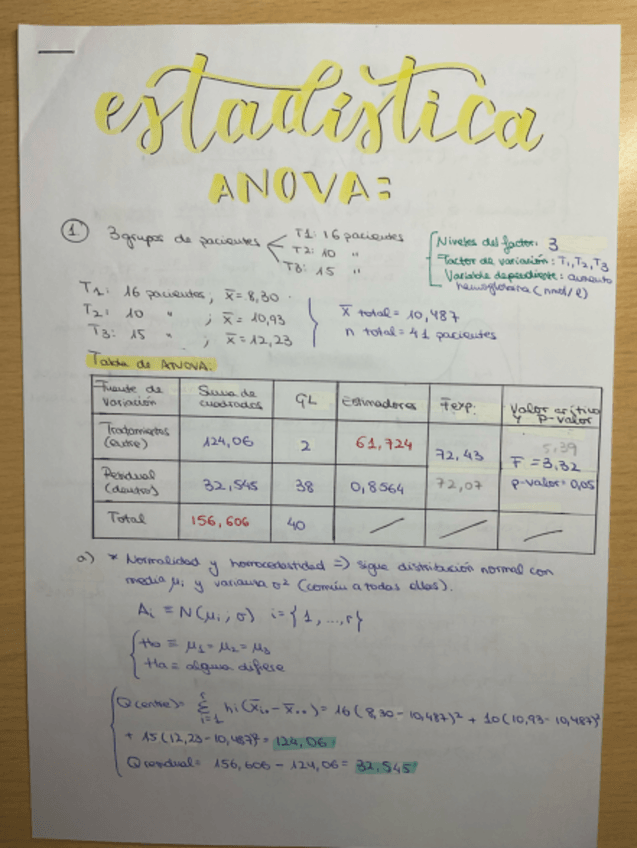 estadística
ANOVA:
1. 3 grupos de pacientes
T1: 16 pacientes
T2: 10 "
T3: 15 "
Niveles del factor: 3
Factor de variación: T1, T2, T3
Variable dependiente: aumento
hemoglobina (nmol/l)
T1: 16 pacientes, x̄ = 8,30
T2: 10 " ; x̄ = 10,93
T3: 15 " ; x̄ = 12,23
x̄ total = 10,487
n total = 41 pacientes
Tabla de ANOVA:
Fuente de variación | Suma de cuadrados | GL | Estimadores | Fexp. | Valor crítico y P-valor
Tratamientos (entre) | 124,06 | 2 | 61,724 | 72,43 | 5,39
F = 3,32
Residual (dentro) | 32,545 | 38 | 0,8564 | 72,07 | p-valor = 0,05
Total | 156,606 | 40
a) * Normalidad y homocedasticidad => sigue distribución normal con
media μi y varianza σ² (común a todas ellas).
Ai ≡ N(μi; σ) i = {1, ..., r}
Ho ≡ μ1 = μ2 = μ3
Ha = alguna difiere
Q(entre) = Σ i=1 r ni (x̄i. - x̄..) = 16(8,30 - 10,487)² + 10(10,93 - 10,487)²
+ 15(12,23 - 10,487)² = 124,06
Qresidual = 156,606 - 124,06 = 32,545